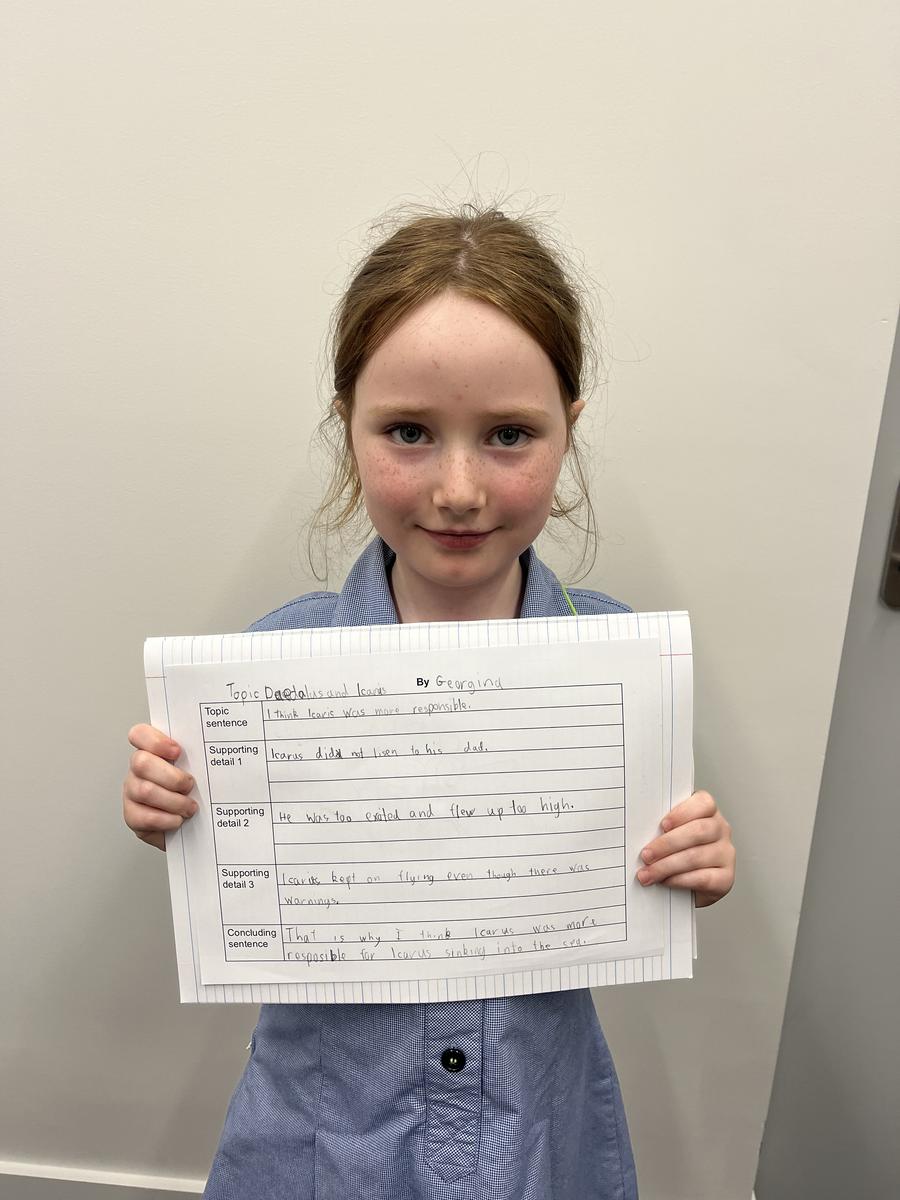 Topic Daedalus and Icarus By Georgina
Topic
sentence
I think Icaris was more responsible.
Supporting
detail 1
Icarus did not lisen to his dad.
Supporting
detail 2
He was too exited and flew up too high.
Supporting
detail 3
Icarus kept on flying even though there was
warnings.
Concluding
sentence
That is why I think Icarus was more
resposible for Icarus sinking into the sea.